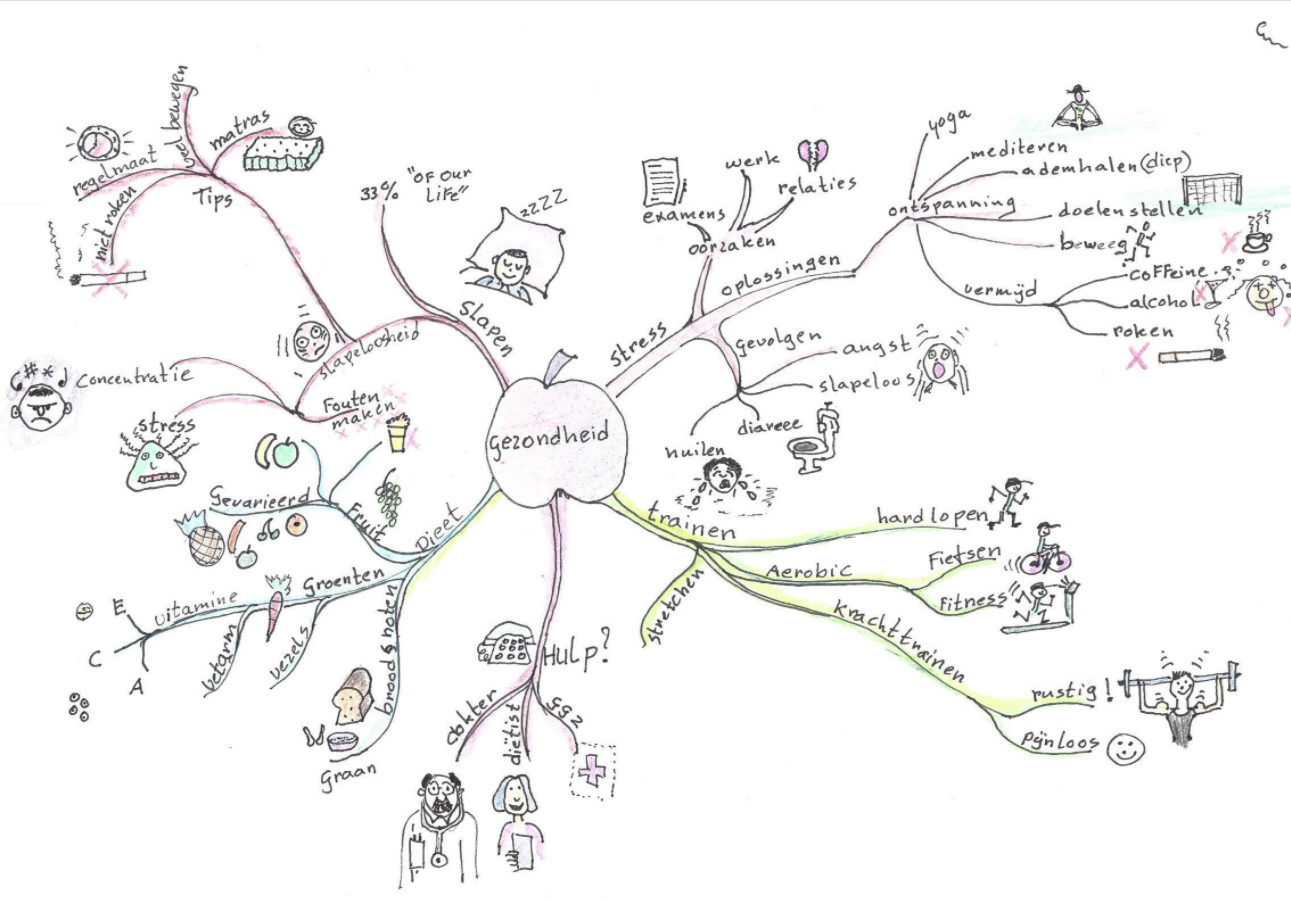 gezondheid
Slapen
33%
"OF OUR
LIFE"
zzzz
slapeloosheid
Tips
veel bewegen
matras
regelmaat
niet roken
Concentratie
#*
stress
Fouten
maken
stress
oorzaken
examens
werk
relaties
oplossingen
ontspanning
yoga
mediteren
ademhalen (diep)
doelen stellen
beweeg
vermijd
coffeine
alcohol
roken
gevolgen
angst
slapeloos
diareee
huilen
trainen
hardlopen
Aerobic
Fietsen
Fitness
krachttrainen
rustig!
pijnloos
stretchen
Hulp?
dokter
diëtist
GGZ
Dieet
Fruit
Gevarieerd
Groenten
vitamine
E
C
A
vetarm
vezels
brood & noten
Graan